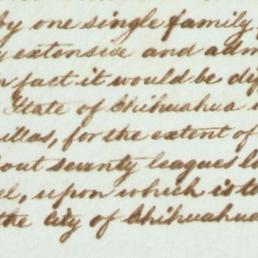 by one single family
extensive and adm
n fact it would be dif
State of Chihuahua
illas, for the extent of
out seventy leagues l
el, upon which is to
the City of Chihuahua